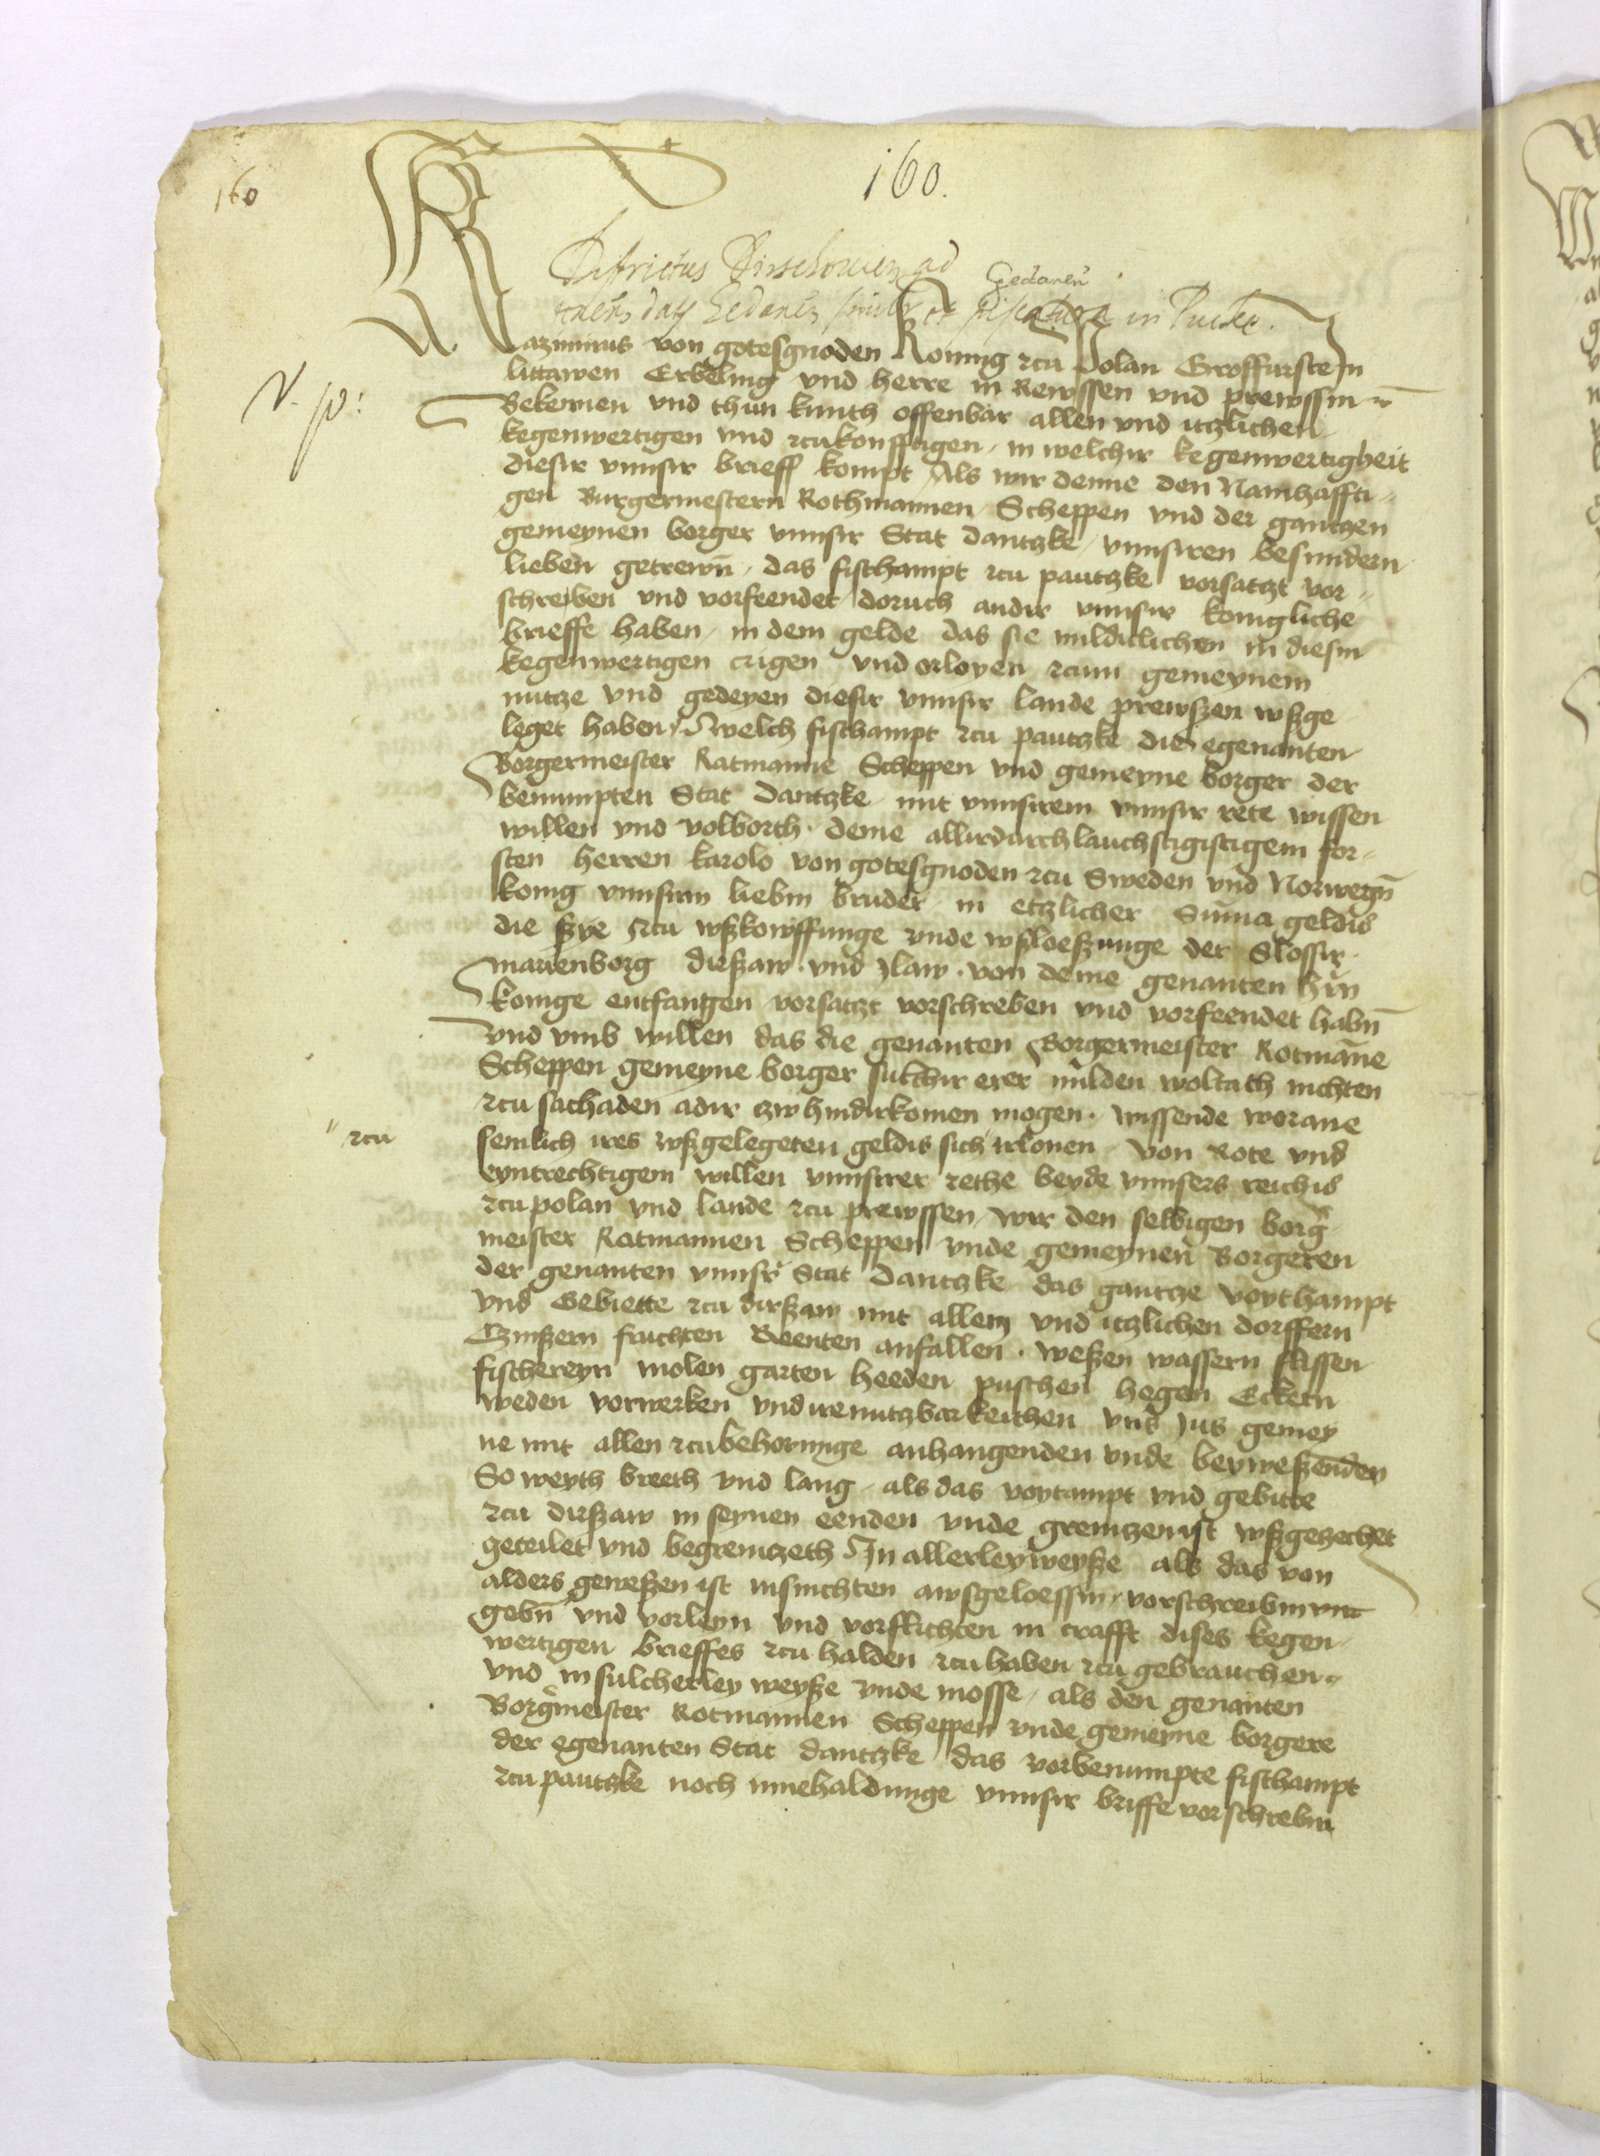 160
160.
Districtus Dirschovien ad
Gedanen
dat Gedanen et piscatura in Puczk.
N. p:
Kazimirus von gotesgnoden Koning zcu Polan Groffurste In
littawen Erbeling vnd herre in Rewssen vnd prewssin
Bekennen vnd thun kunth offenbar allen vnd itzlichen
kegenwertigen vnd zcukonfftigen, in welchir kegenwertigheit
diesir vnnsir brieff kompt Als wir denne den Namhaffti-
gen Burgermestern Rothmannen Scheppen vnd der gantzen
gemeynen borger vnnsir Stat dantzke, vnnsiren besundern
lieben getrewn, das fischampt zcu pautzke vorsatzt vor-
schreiben vnd vorfeendet doruch andir vnnsir konigliche
brieffe haben, in dem gelde das sie mildiclichen in diesin
kegenwertigen crigen vnd orloyen zcum gemeynem
nutze vnd gedeyen diesir vnnsir lande prewszen wszge
leget haben, welch fischampt zcu pautzke die egenanten
Borgermeister Ratmanne Scheppen vnd gemeyne borger der
benumpten Stat Dantzke mit vnnsirem vnnsir rete wissen
willen vnd volborth. deme allirdurchlauchstigistigem for-
sten herren karolo von gotesgnoden zcu Sweden vnd Norwegn
konig vnnsirm liebin bruder in etzlicher Suma geldis
die sye zcu wszkowffunge vnde wszloeszunge der Slossir
marienborg dirszaw. vnd Ilaw. von deme genanten hrn
konige entfangen vorsatzt vorschreben vnd vorfeendet habn
vnd vmb willen das die genanten Borgermeister Rotmane
Scheppen gemeyne borger sulchir erer milden woltath nichten
zcu sachaden adir zw hindirkomen mogen. wissende worane
" zcu
semlich ires wszgelegeten geldis sich " irlonen Von Rote vnd
eyntrechtigem willen vnnsirer rethe beyde vnnsers reichis
zcu polan vnd lande zcu prewssen, wir den selbigen borg
meister Ratmannen Scheppen vnde gemeynen Borgeren
der genanten vnnsir Stat Dantzke das gantze voythampt
vnd Gebiette zcu dirszaw mit allem vnd itzlichen dorffern
Czinszern fruchten Reenten anfallen. weszen wassern flissen
fischereyn molen garten heeden puschen hegen Eckern
weden vorwerken vnd irenutzbarkeithen vnd Ins gemey
ne mit allen zcubehorunge anhangenden vnde beyweszenden
So weyth breeth vnd lang, als das voytampt vnd gebitte
zcu dirszaw in seynen eenden vnde grenitzen ist wszgezechet
geteilet vnd begrenitzeth In allerley weysze als das von
alders geweszen ist insnichten awsgeloessin, vorschreibin vnd
gebn vnd vorleyn vnd vorflichten in crafft dises kegen-
wertigen brieffes zcu halden zcu haben zcu gebrauchen.
vnd in sulcherley weysze vnde mosse, als den genanten
Borgmeister Rotmannen Scheppen vnde gemeine borgere
der egenanten Stat dantzke das vorbenumpte fischampt
zcu pautzke noch innehaldunge vnnsir briffe vorschrebin